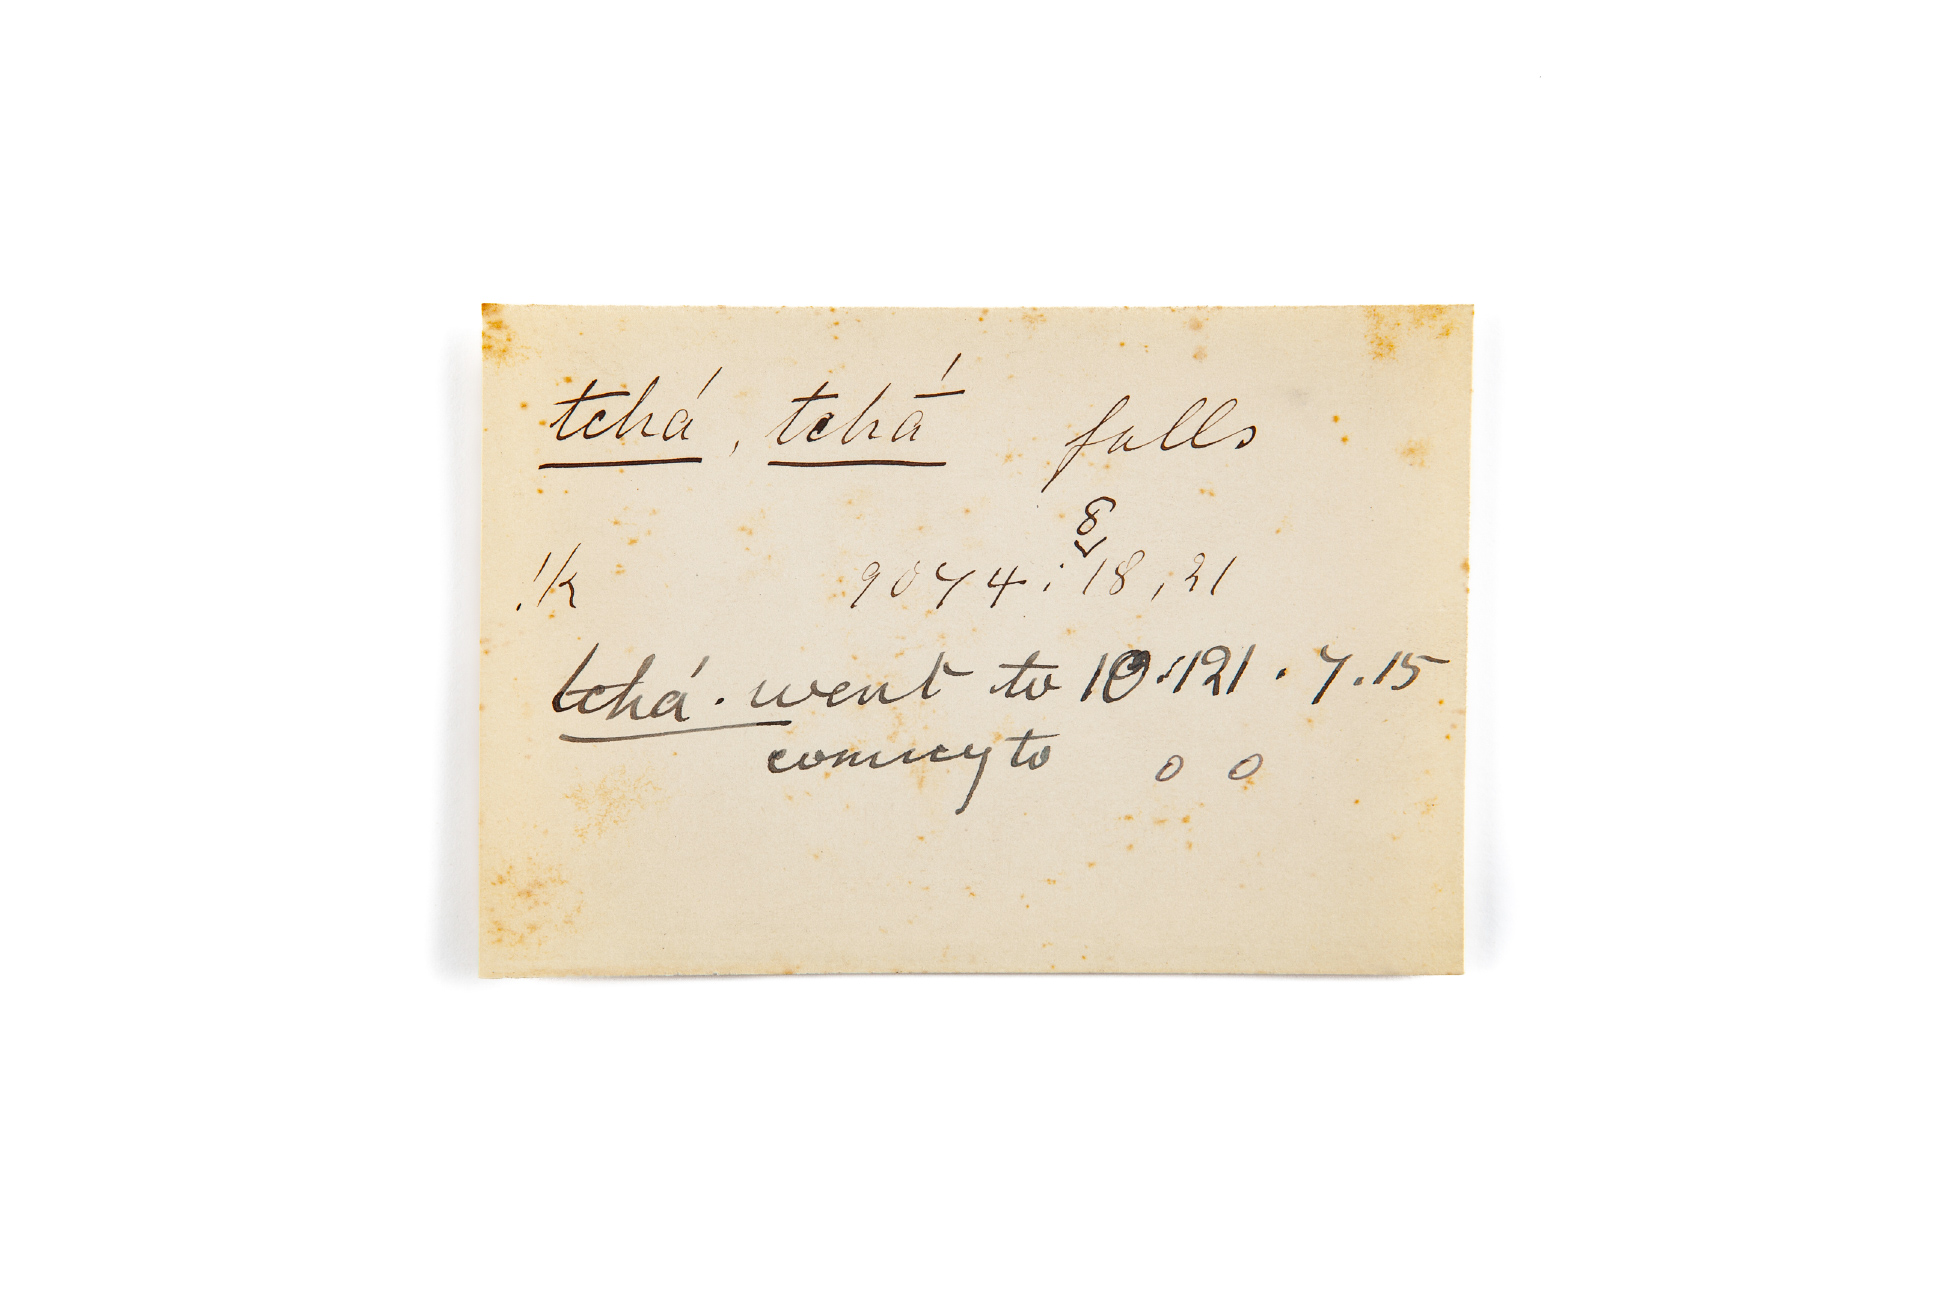 tchá, tchā́ falls
8
!k 9074: 18, 21
tchá. went to 10.121. 7.15
coming to 0 0